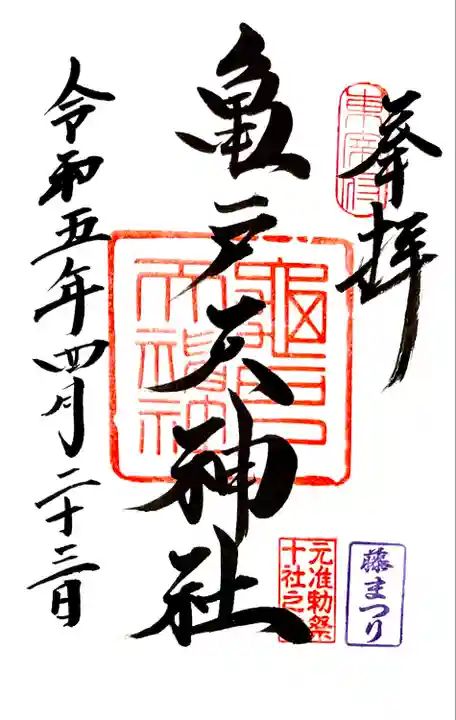 奉拝
東宰府
亀戸天神社
龜戸天満神
元准勅祭
十社之
藤まつり
令和五年四月二十三日